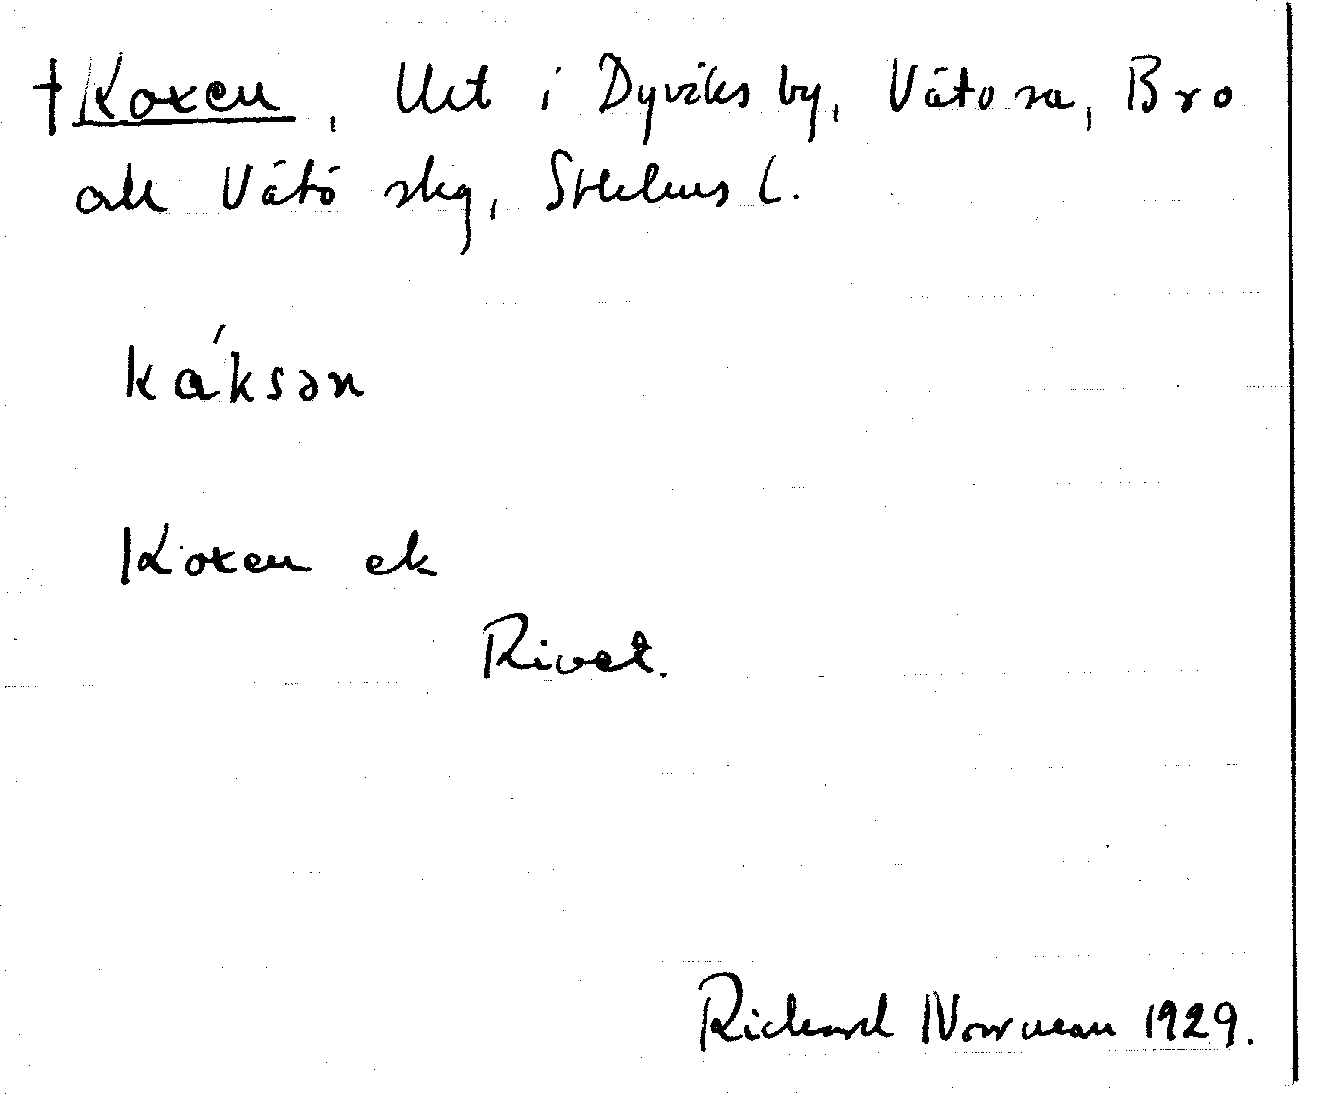 †Koxen, Utt i Dyviks by, Vätö sn, Bro
och Vätö skg, Sthlms l.
káksən
Koxen ek
Rivet.
Richard Norrman 1929.